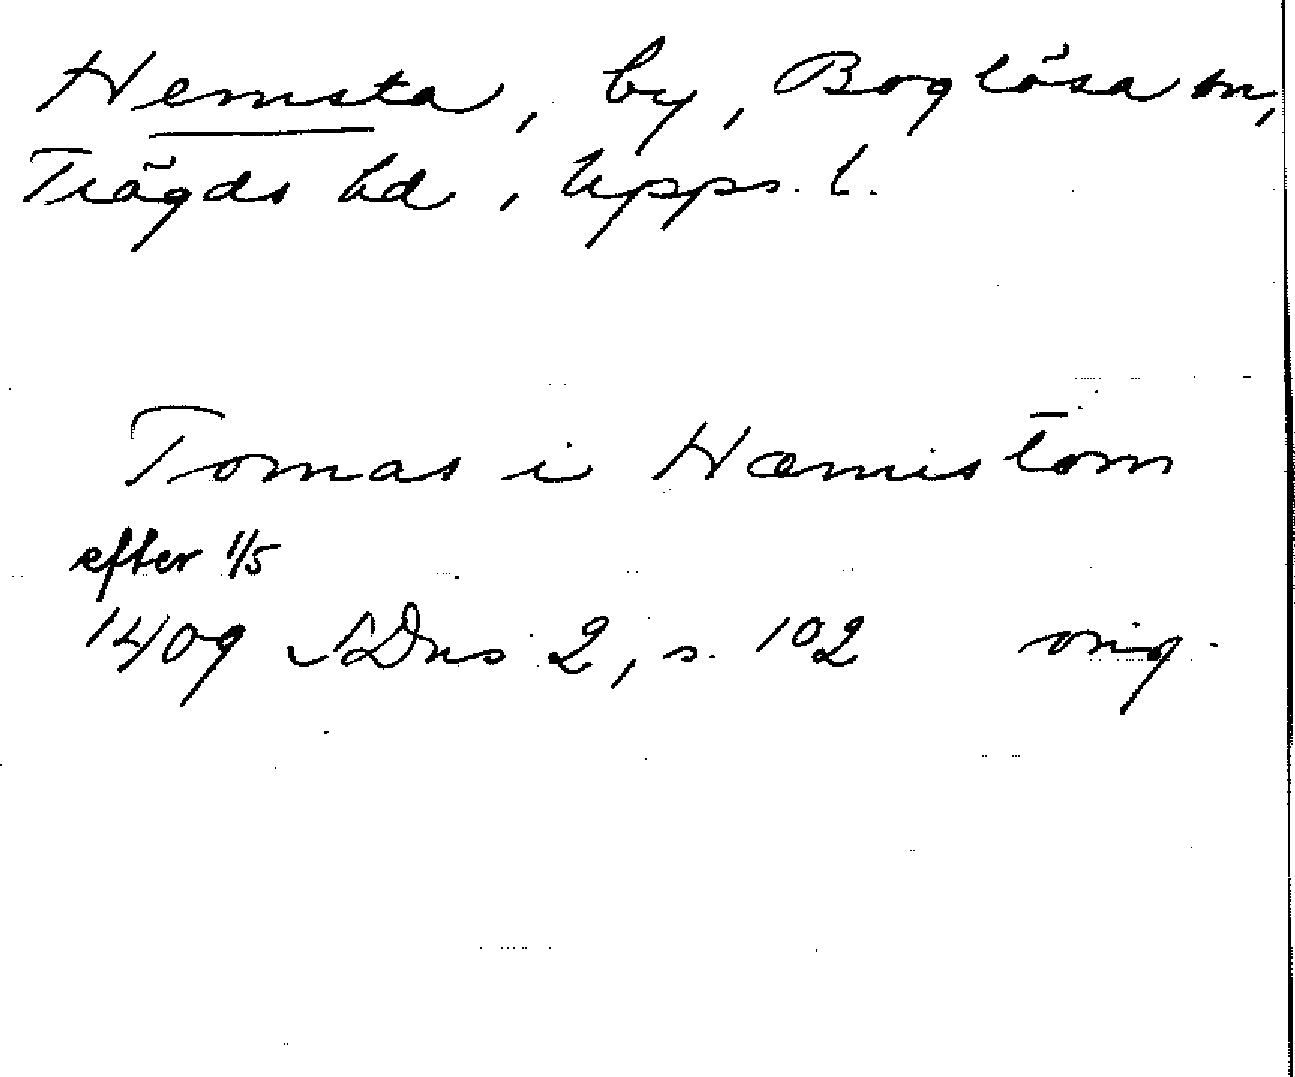 Hemsta, by, Boglösa sn,
Trögds hd, Upps. l.
Tomas i Hæmistom
efter 1/5
1409 SDns 2, s. 102 orig.